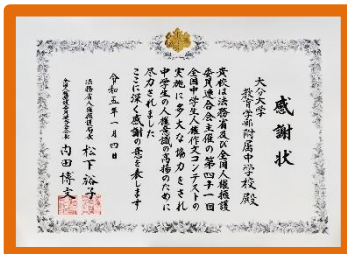 感謝状
大分大学
教育学部附属中学校殿
貴校は法務省及び全国人権擁護
委員連合会主催の第四十一回
全国中学生人権作文コンテストの
実施に多大な協力をされ
中学生の人権意識の高揚のために
尽力されました
ここに深く感謝の意を表します
令和五年一月四日
法務省人権擁護局長 松下裕子
全国人権擁護委員連合会会長 内田博文